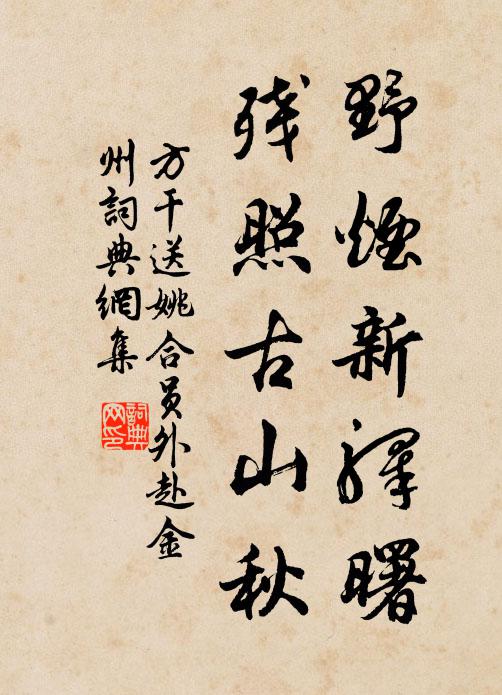 野煙新驛曙
残照古山秋
方干送姚合員外赴金
州詞典網集
詞典网印